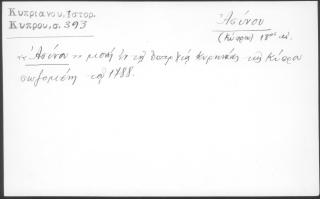 Κυπριανου, Ιστορ.
Κυπρου, σ. 393
Ἀσίνου
(Κύπρου) 18ος αἰ.
"Ἀσίνου" μονή ἐν τῇ ἐπαρχίᾳ Κυρηνείας τῆς Κύπρου
σωζομένη τῷ 1788.